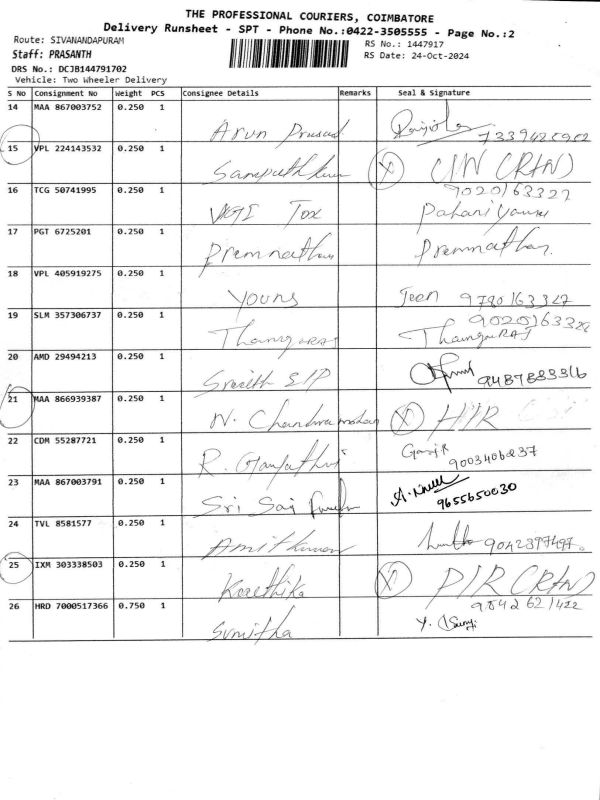 THE PROFESSIONAL COURIERS, COIMBATORE
Delivery Runsheet - SPT - Phone No.:0422-3505555 - Page No.:2
Route: SIVANANDAPURAM
RS No.: 1447917
Staff: PRASANTH
RS Date: 24-Oct-2024
DRS No.: DCJB144791702
Vehicle: Two Wheeler Delivery
S No Consignment No Weight PCS Consignee Details Remarks Seal & Signature
14 MAA 867003752 0.250 1
Arun Prasad
15 VPL 224143532 0.250 1
Sampathkum (X)
16 TCG 50741995 0.250 1 9020163327
17 PGT 6725201 0.250 1
Premnathan Premnathan
18 VPL 405919275 0.250 1
Youns Jeen 9780163327
19 SLM 357306737 0.250 1
ThangaRAJ
20 AMD 29494213 0.250 1
9487883316
21 MAA 866939387 0.250 1
N. Chandramohan (X)
22 CDM 55287721 0.250 1
R. Gayathri
23 MAA 867003791 0.250 1
Sri Sai 9655650030
24 TVL 8581577 0.250 1
Amitkumar 9042397497
25 IXM 303338503 0.250 1
Keerthika (X)
26 HRD 7000517366 0.750 1 9842621422
Sumitha